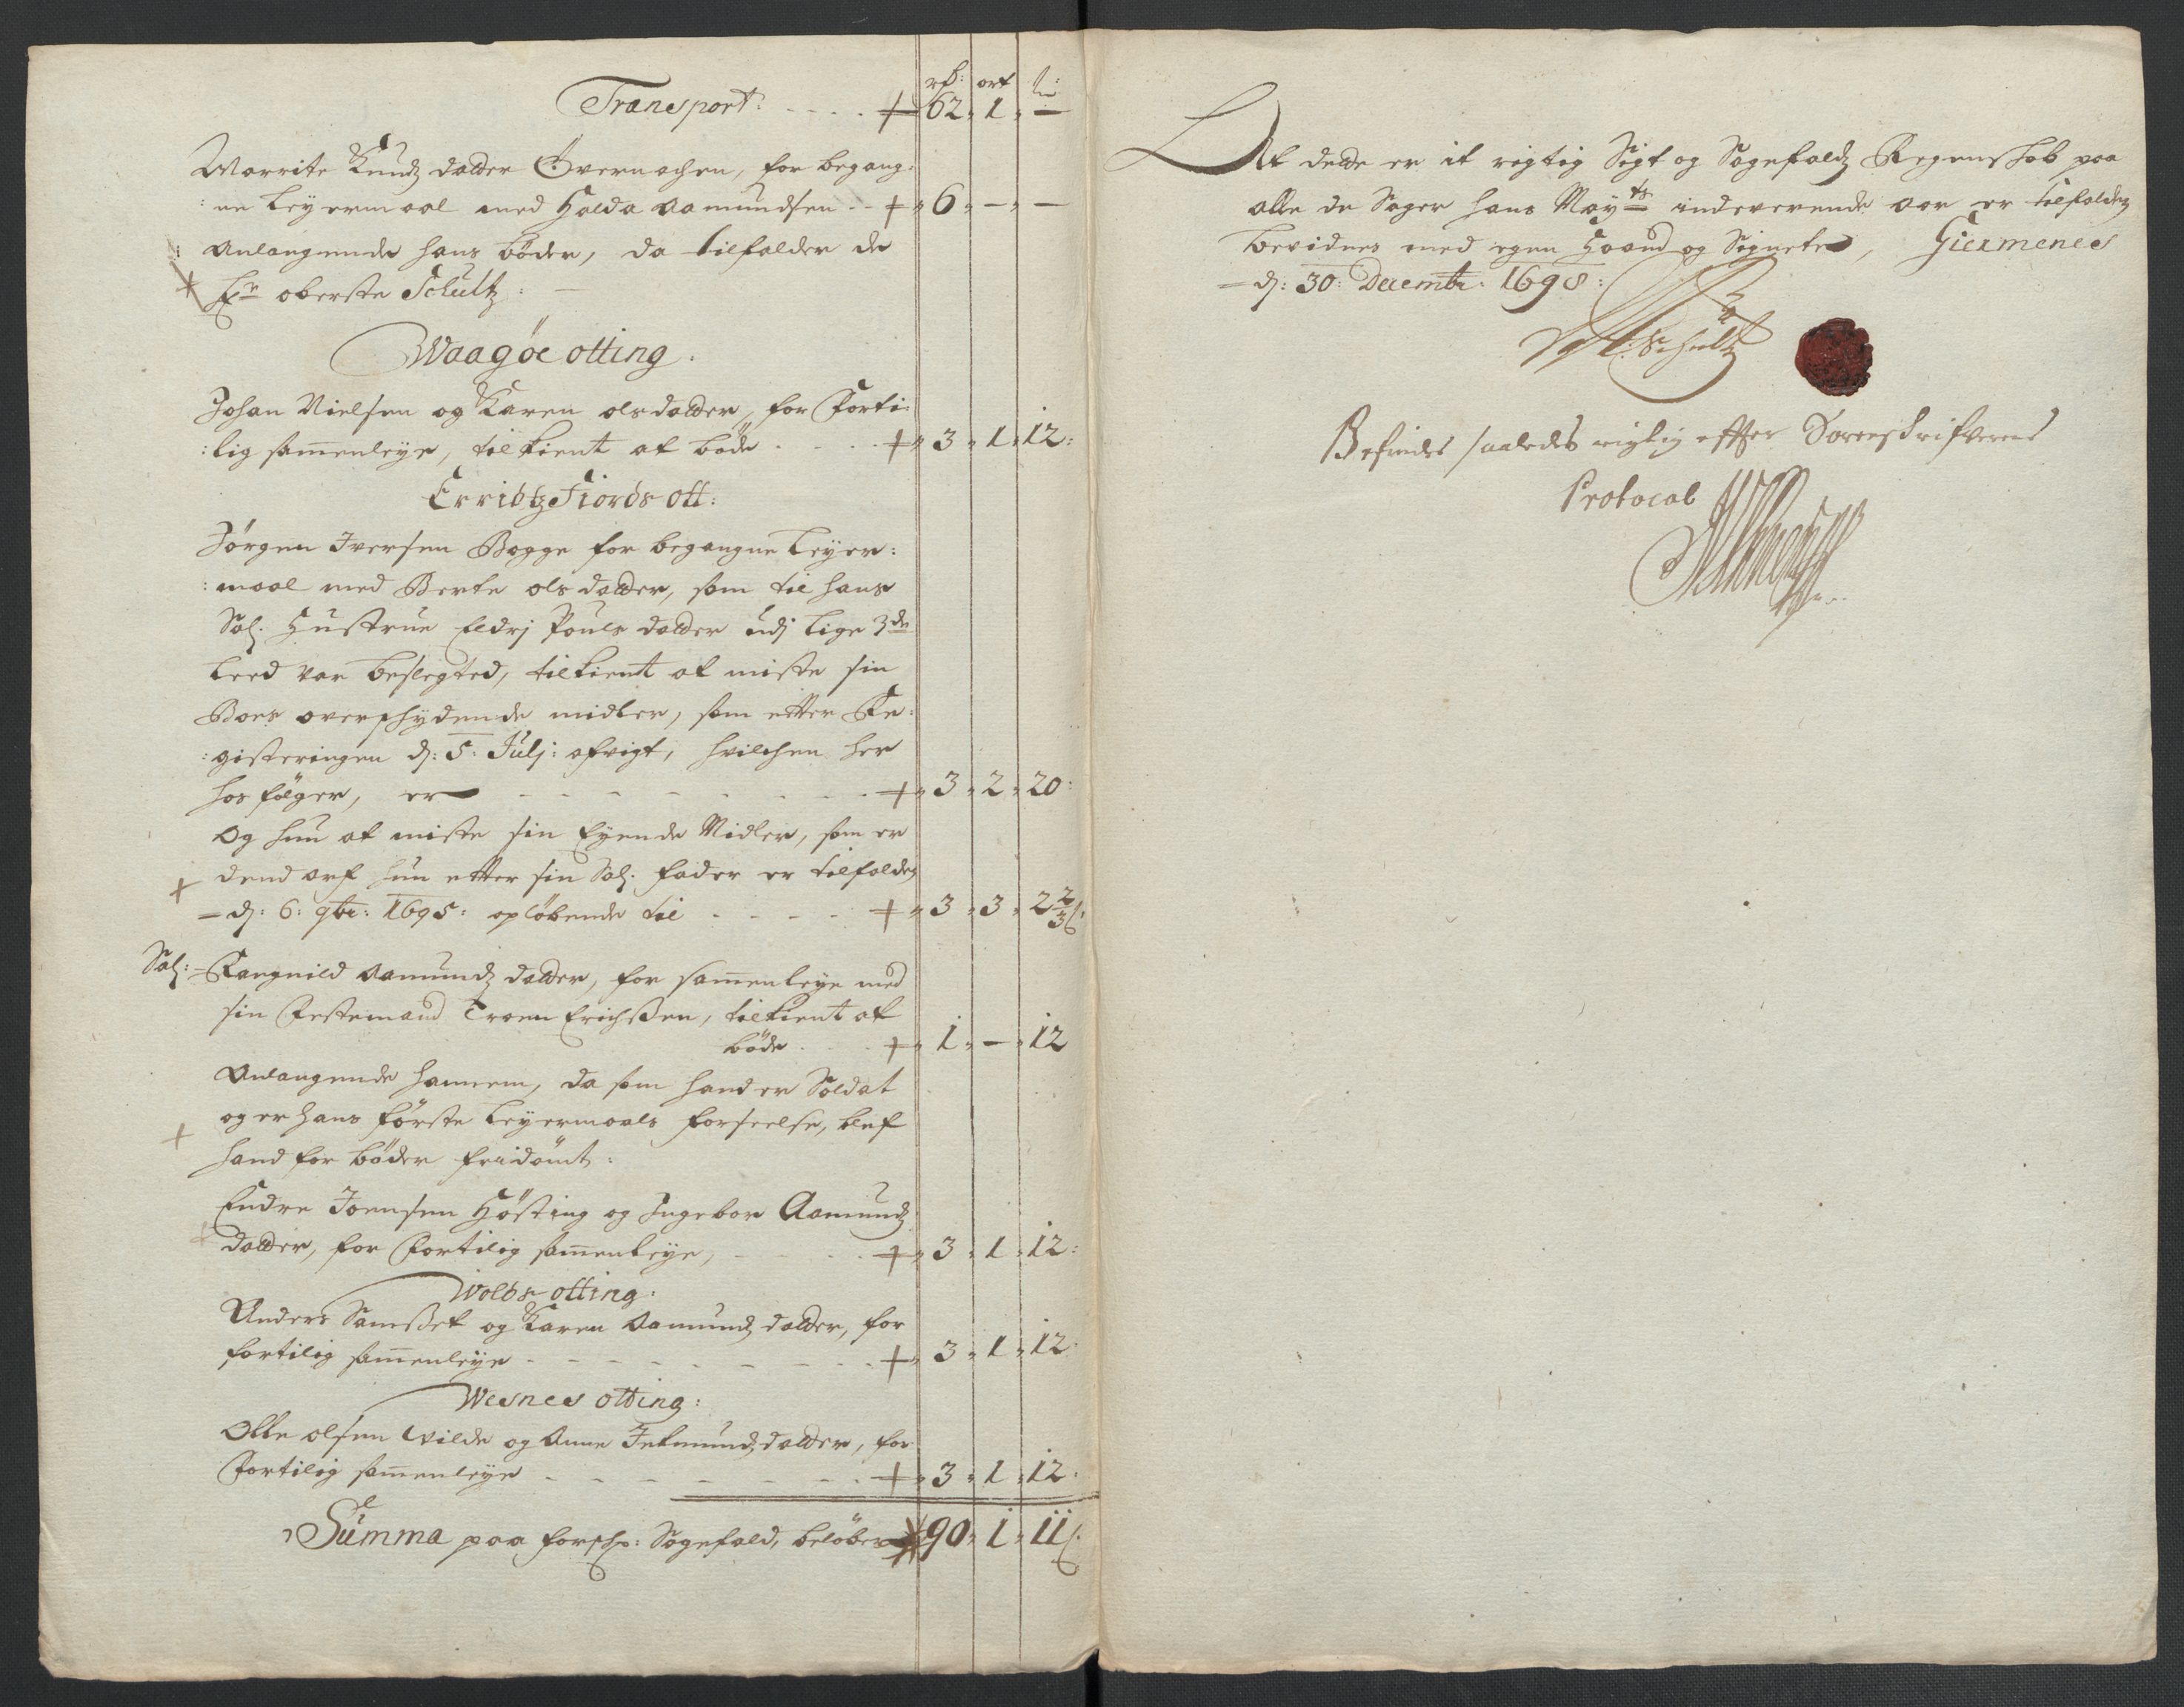 rd: ort s:
Transport: - - - - + 62, 1, —
Marrite Knudz datter Øvernachen, for begang:
:ne leyermaal med Halda Aamundsen - - + 6, —, —
: Anlangende hans bøder, da tilfalder de
Hr oberste Schultz: —
Waagöe otting.
Johan Nielsen og Karen olsdatter, for Forti:
:lig samenleye, tilkient at bøde - - - + 3, 1, 12:
Erridtz Fiords ott:
Jörgen Iversen Bogge for begangne leyer:
:maal med Berte olsdatter, som til hans
Sal: Hustrue Eldri Pouls datter udj lige 3de
leed var beslegted, tilkient at miste sin
Boes overschydende midler, som etter Re:
:gisteringen d: 5: Julj: afvigt, hvilchen her
hos følger, er - - - - - - - - + 3, 2, 20:
Og hun at miste sin Eyende Midler, som er
+ dend arf hun etter sin Sal: fader er tilfalden
- d: 6: 9br: 1695: opløbende til - - - - + 3, 3, 2 2/3 s:
Sal: - Rangnild Aamundz datter, for samenleye med
sin Festemand Troen Erichssen, tilkient at
bøde - - + 1, —, 12
Anlangende hannem, da som hand er Soldat
+ og er hans første leyermaals forseelse, blef
hand for bøder fridömt:
Endre Joensen Hösting og Ingebor Aamundz
datter, for Fortilig samenleye, - - - - + 3, 1, 12:
Wolds otting.
Anders Samsset og Karen Aamundz datter, for
fortilig samenleye - - - - - - - - + 3, 1, 12:
Wesnes otting:
Olle olsen Vilde og Anne Jetmundz datter, for
Fortilig samenleye - - - - - - - + 3, 1, 12.
Summa paa forschr: Sagefald, beløber 90, 1, 11 s:
At dette er it rigtig Sigt og Sagefaldz Regenskab paa
alle de Sager hans Mayts indeverende aar er tilfalden
bevidnes med egen Haand og Signete, Giermenes
- d: 30: Decembr: 1698:
Schultz
Befindes saaledes rigtig effter Sorenskrifverens
Protocol